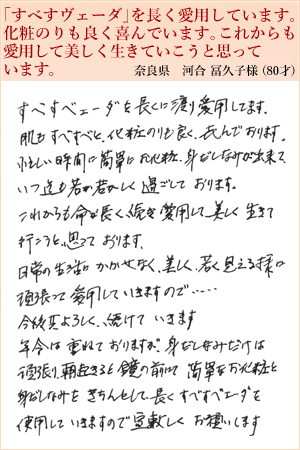 「すべすヴェーダ」を長く愛用しています。
化粧のりも良く喜んでいます。これからも
愛用して美しく生きていこうと思って
います。
奈良県　河合 冨久子様（80才）
すべすべヴェーダを長くに渡り愛用してます。
肌もすべすべと、化粧のりも良く、喜んでおります。
忙しい時間に簡単にお化粧、身だしなみが出来て
いつ迄も若々しく過ごしております。
これからも命が長く、愛用して、美しく生きて
行こうと、思っております。
日常の生活にかかせなく、美しく、若く見える様に
頑張って愛用していきますので……
今後共よろしく、続けていきます
年令は重ねておりますが、身だしなみだけは
頑張り、朝起きると鏡の前にて簡単なお化粧と
身だしなみをきちんとして、長くすべすべヴェーダを
使用していきますので宜敷しくお願いします